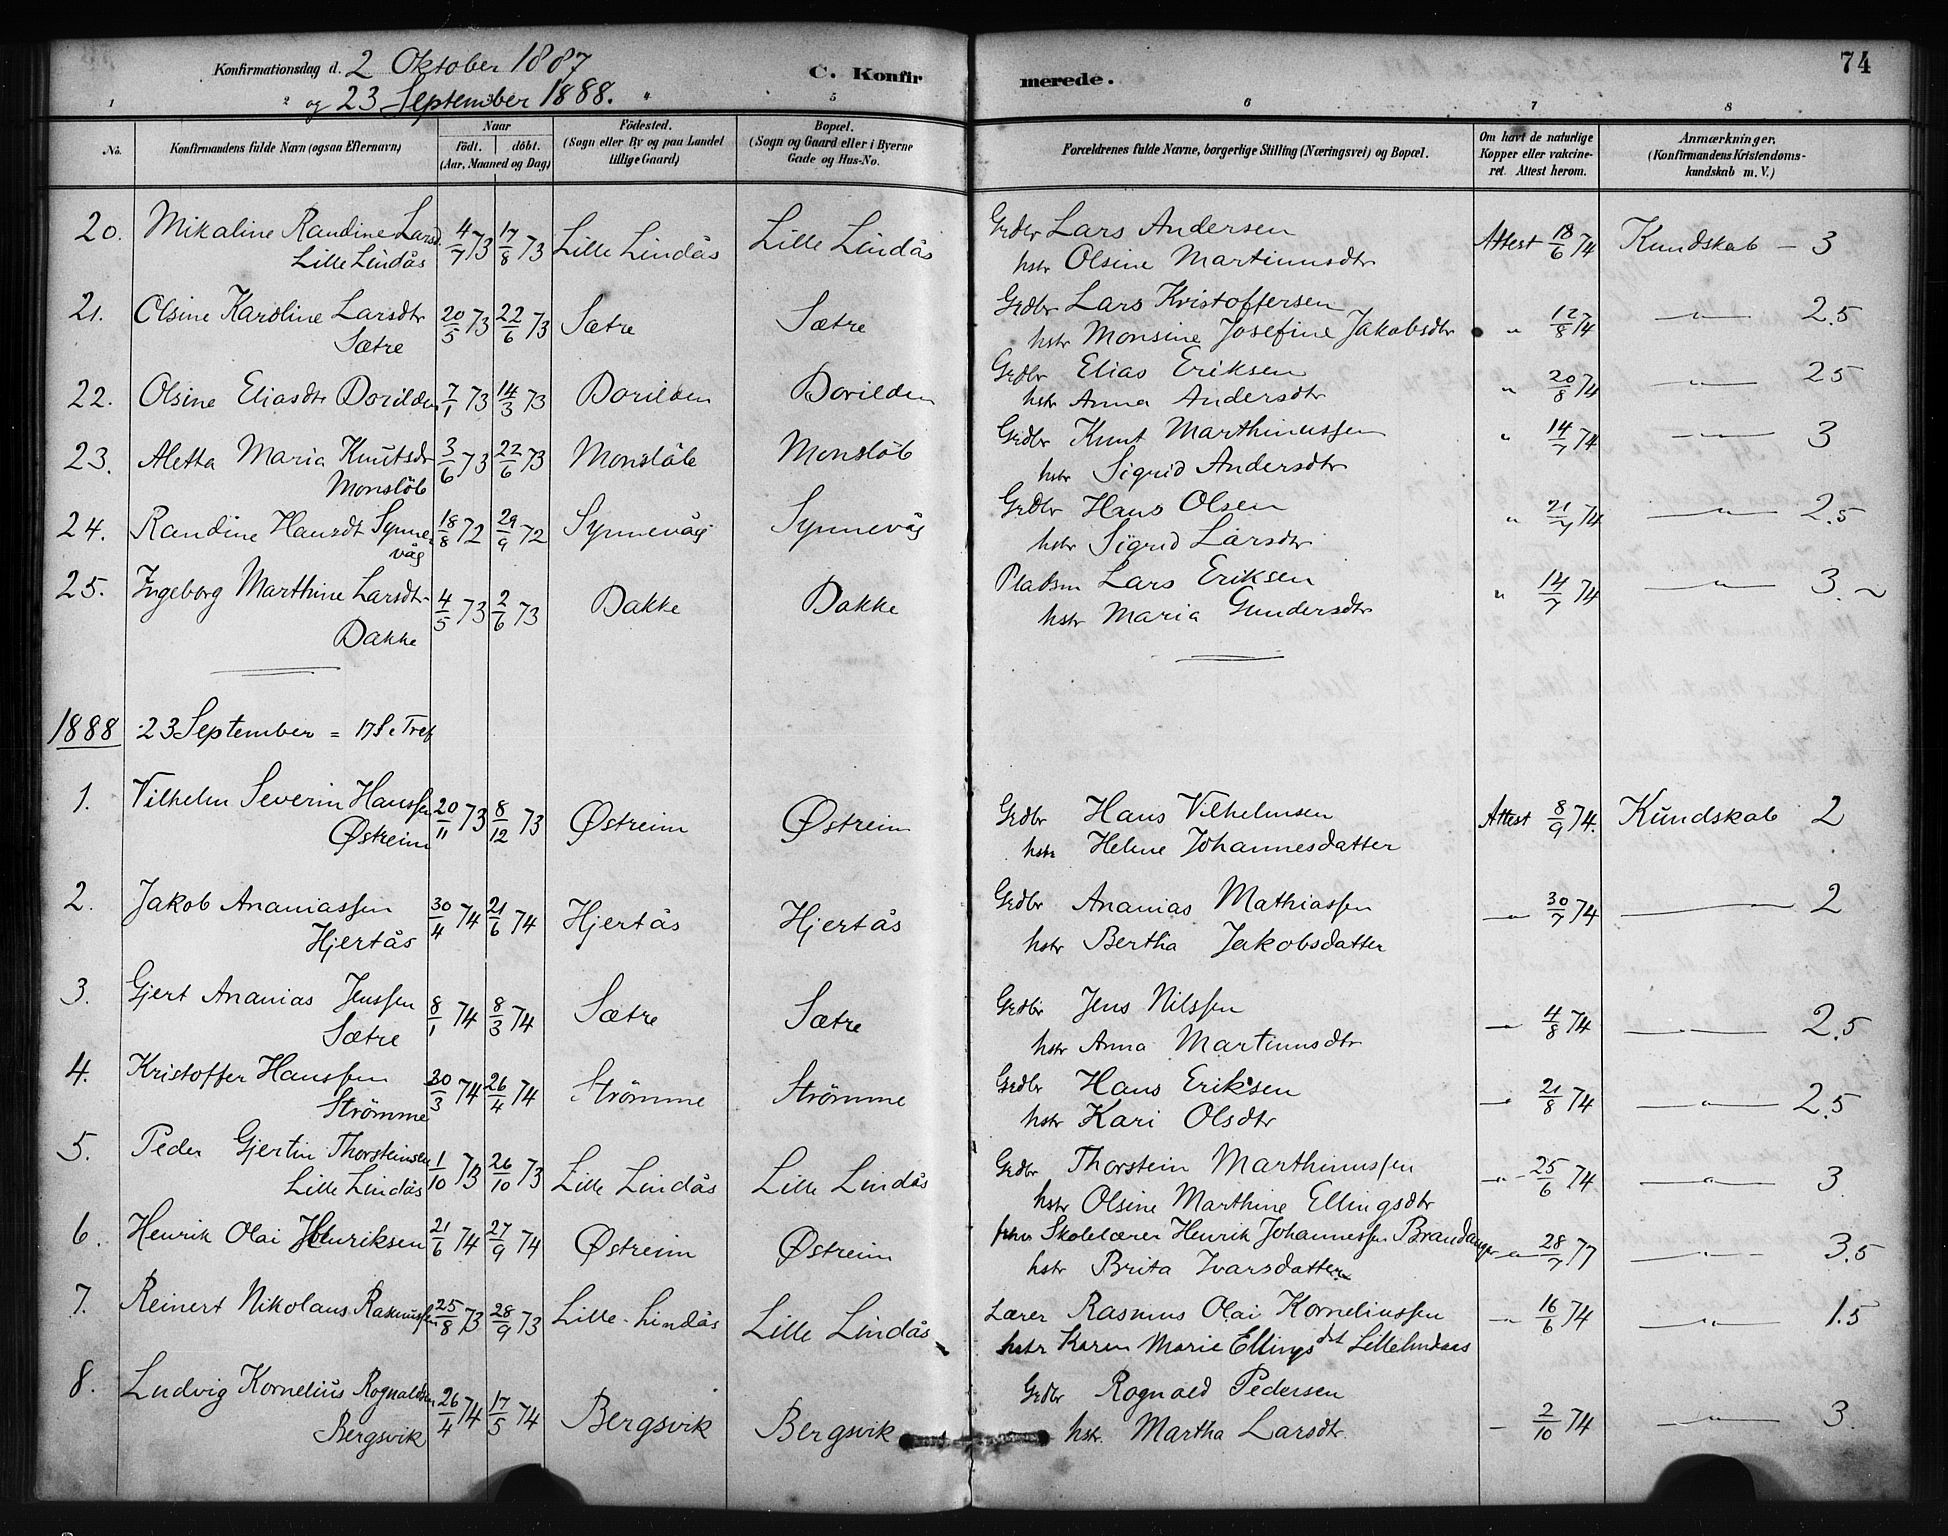 Konfirmationsdag d. 2 Oktober 1887
og 23 September 1888.
C. Konfir
merede.
74
1 2 3 4 5 6 7 8
No.
Konfirmandens fulde Navn (ogsaa Efternavn)
Naar
födt. döbt.
(Aar, Maaned og Dag)
Födested.
(Sogn eller By og paa Landet
tillige Gaard)
Bopæl.
(Sogn og Gaard eller i Byerne
Gade og Hus-No.
Forældrenes fulde Navne, borgerlige Stilling (Næringsvei) og Bopæl.
Om havt de naturlige
Kopper eller vakcine-
ret. Attest herom.
Anmærkninger.
(Konfirmandens Kristendoms-
kundskab m. V.)
20. Mikaline Randine Larsd. 4/7 73 17/8 73 Lille Lindås Lille Lindås Grdbr Lars Andersen Attest 18/6 74 Kundskab - 3
Lille Lindås hstr Olsine Martinusdtr
21. Olsine Karoline Larsdtr 20/5 73 22/6 73 Sætre Sætre Grdbr Lars Kristoffersen " 12/8 74 —"— 2.5
Sætre hstr Monsine Josefine Jakobsdtr
22. Olsine Eliasdtr Dorilden 7/1 73 14/3 73 Dorilden Dorilden Grdbr Elias Eriksen " 20/8 74 —"— 25
hstr Anna Andersdtr
23. Aletta Maria Knutsdr 3/6 73 22/6 73 Monslöb Monslöb Grdbr Knut Marthinussen " 14/7 74 —"— 3
Monslöb hstr Sigrid Andersdtr
24. Randine Hansdt Synne- 18/8 72 29/9 72 Synnevåg Synnevåg Grdbr Hans Olsen " 21/7 74 —"— 2.5
våg hstr Sigrid Larsdtr
25. Ingeborg Marthine Larsdtr 4/5 73 2/6 73 Dakke Dakke Pladsm Lars Eriksen " 14/7 74 —"— 3. ~
Dakke hstr Maria Gundersdtr
1888 23 September = 17 S. e Tref
1. Vilhelm Severin Hanssen 20/11 73 8/12 73 Østreim Østreim Grdbr Hans Vilhelmsen Attest 8/9 74. Kundskab 2
Østreim hstr Helene Johannesdatter
2. Jakob Ananiassen 30/4 74 21/6 74 Hjertås Hjertås Grdbr Ananias Mathiassen —"— 30/7 74 —"— 2
Hjertås hstr Bertha Jakobsdatter
3. Gjert Ananias Jenssen 8/1 74 8/3 74 Sætre Sætre Grdbr Jens Nilssen —"— 4/8 74 —"— 2.5
Sætre hstr Anna Martinusdtr
4. Kristoffer Hanssen 30/3 74 26/4 74 Strömme Strömme Grdbr Hans Eriksen —"— 21/8 74 —"— 2.5
Strömme hstr Kari Olsdtr
5. Peder Gjertin Thorsteinsen 1/10 73 26/10 73 Lille Lindås Lille Lindås Grdbr Thorstein Marthinussen —"— 25/6 74 —"— 3.
Lille Lindås hstr Olsine Marthine Ellingsdtr
6. Henrik Olai Henriksen 21/6 74 27/9 74 Østreim Østreim Skolelærer Henrik Johannessen Brandanger —"— 28/7 77 —"— 3.5
hstr Brita Ivarsdatter
7. Reinert Nikolaus Rasmussen 25/8 73 28/9 73 Lille-Lindås Lille Lindås Lærer Rasmus Olai Korneliussen —"— 16/6 74 —"— 1.5
hstr Karen Marie Ellingsdat Lillelindaas
8. Ludvig Kornelius Rognaldsen 26/4 74 17/5 74 Bergsvik Bergsvik Grdbr Rognald Pedersen — 2/10 74 —"— 3.
Bergsvik hstr. Martha Larsdtr.